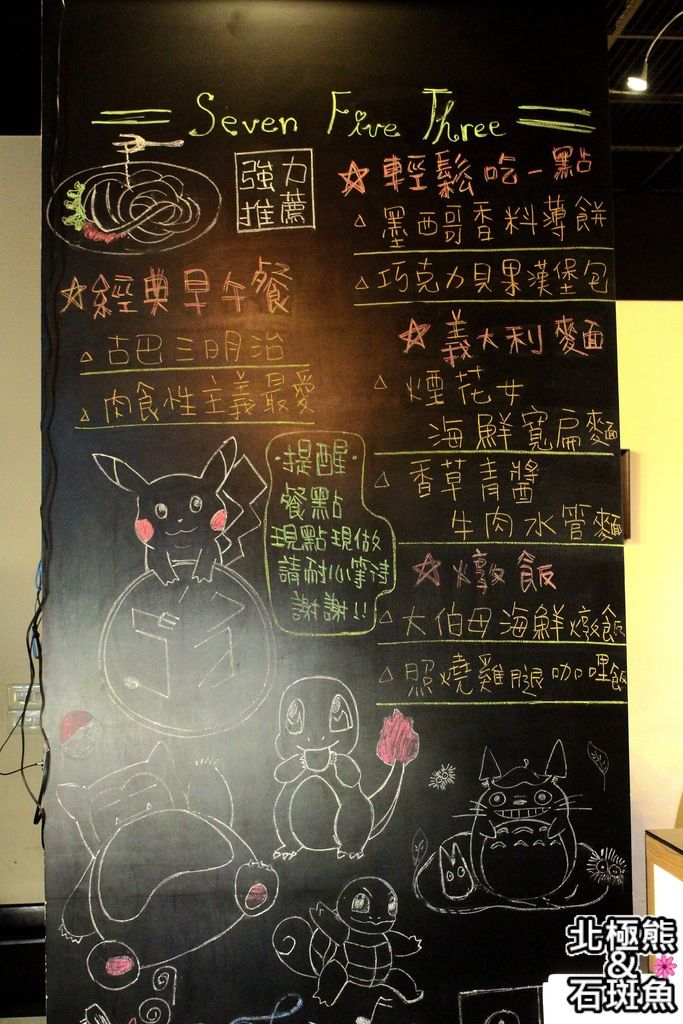 Seven Five Three
強力
推薦
經典早午餐
古巴三明治
肉食性主義最愛
輕鬆吃一點
墨西哥香料薄餅
巧克力貝果漢堡包
義大利麵
煙花女
海鮮寬扁麵
香草青醬
牛肉水管麵
燉飯
大伯母海鮮燉飯
照燒雞腿咖哩飯
提醒
餐點
現點現做
請耐心等待
謝謝!!
北極熊
&
石斑魚